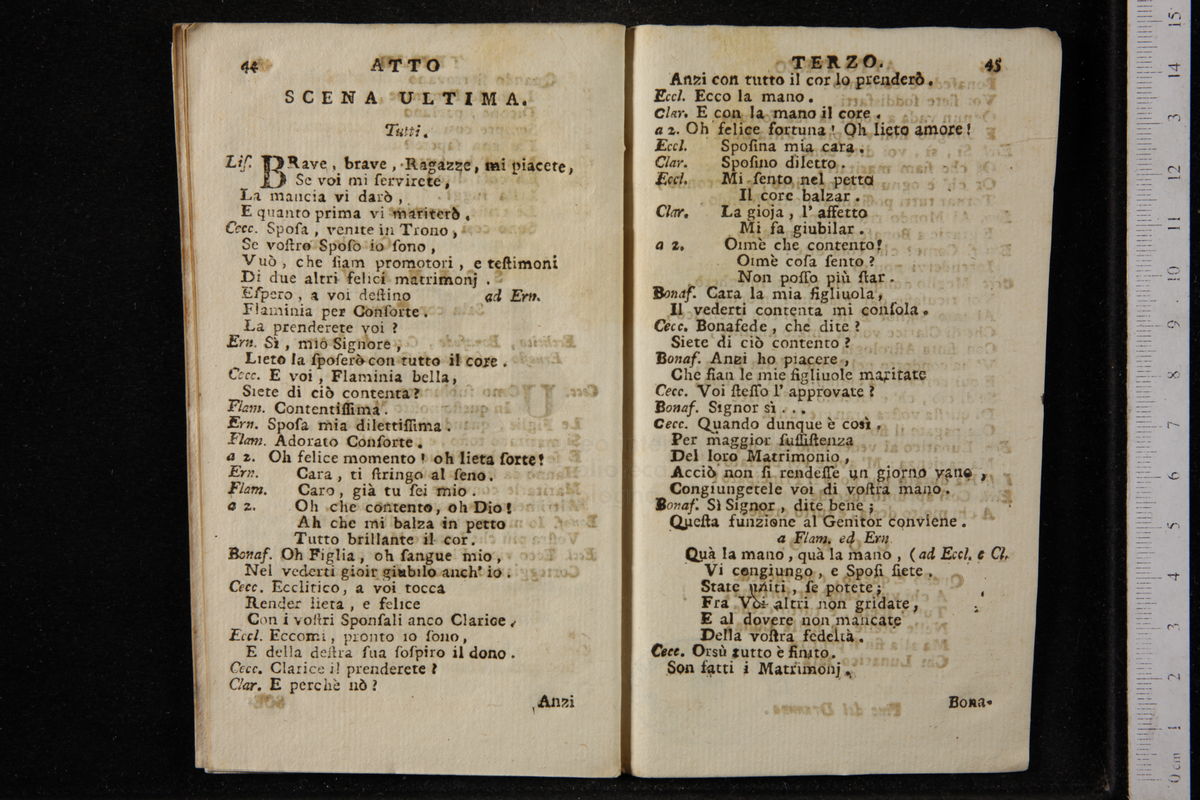 44 ATTO
SCENA ULTIMA.
Tutti.
Lis. BRave, brave, Ragazze, mi piacete,
Se voi mi ſervirete,
La mancia vi darò,
E quanto prima vi mariterò.
Cecc. Spoſa, venite in Trono,
Se voſtro Spoſo io ſono,
Vuò, che ſiam promotori, e teſtimoni
Di due altri felici matrimonj.
Eſpero, a voi deſtino ad Ern.
Flaminia per Conſorte.
La prenderete voi?
Ern. Sì, mio Signore,
Lieto la ſpoſerò con tutto il core.
Cecc. E voi, Flaminia bella,
Siete di ciò contenta?
Flam. Contentiſſima.
Ern. Spoſa mia dilettiſſima.
Flam. Adorato Conſorte.
a 2. Oh felice momento! oh lieta ſorte!
Ern. Cara, ti ſtringo al ſeno.
Flam. Caro, già tu ſei mio.
a 2. Oh che contento, oh Dio!
Ah che mi balza in petto
Tutto brillante il cor.
Bonaf. Oh Figlia, oh ſangue mio,
Nel vederti gioir giubilo anch' io.
Cecc. Ecclitico, a voi tocca
Render lieta, e felice
Con i voſtri Sponſali anco Clarice.
Eccl. Eccomi, pronto io ſono,
E della deſtra ſua ſoſpiro il dono.
Cecc. Clarice il prenderete?
Clar. E perchè nò?
Anzi
TERZO. 45
Anzi con tutto il cor lo prenderò.
Eccl. Ecco la mano.
Clar. E con la mano il core.
a 2. Oh felice fortuna! Oh lieto amore!
Eccl. Spoſina mia cara.
Clar. Spoſino diletto.
Eccl. Mi ſento nel petto
Il core balzar.
Clar. La gioja, l' affetto
Mi fa giubilar.
a 2. Oimè che contento!
Oimè coſa ſento?
Non poſſo più ſtar.
Bonaf. Cara la mia figliuola,
Il vederti contenta mi conſola.
Cecc. Bonafede, che dite?
Siete di ciò contento?
Bonaf. Anzi ho piacere,
Che ſian le mie figliuole maritate
Cecc. Voi ſteſſo l' approvate?
Bonaf. Signor sì...
Cecc. Quando dunque è così,
Per maggior ſuſſiſtenza
Del loro Matrimonio,
Acciò non ſi rendeſſe un giorno vano,
Congiungetele voi di voſtra mano.
Bonaf. Sì Signor, dite bene;
Queſta funzione al Genitor conviene.
a Flam. ed Ern
Quà la mano, quà la mano, (ad Eccl. e Cl.
Vi congiungo, e Spoſi ſiete.
State uniti, ſe potete;
Fra Voi altri non gridate,
E al dovere non mancate
Della voſtra fedeltà.
Cecc. Orsù tutto è finito.
Son fatti i Matrimonj.
Bona-